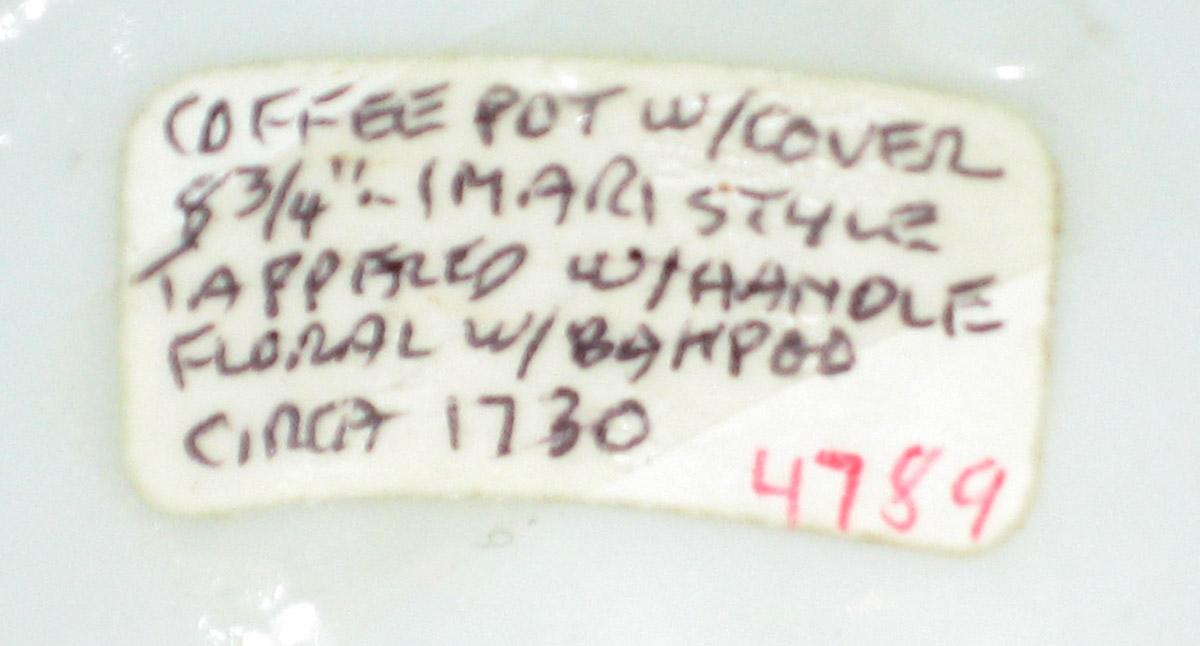 COFFEE POT W/COVER
8 3/4" - IMARI STYLE
TAPPERED W/HANDLE
FLORAL W/BAMBOO
CIRCA 1730
4789